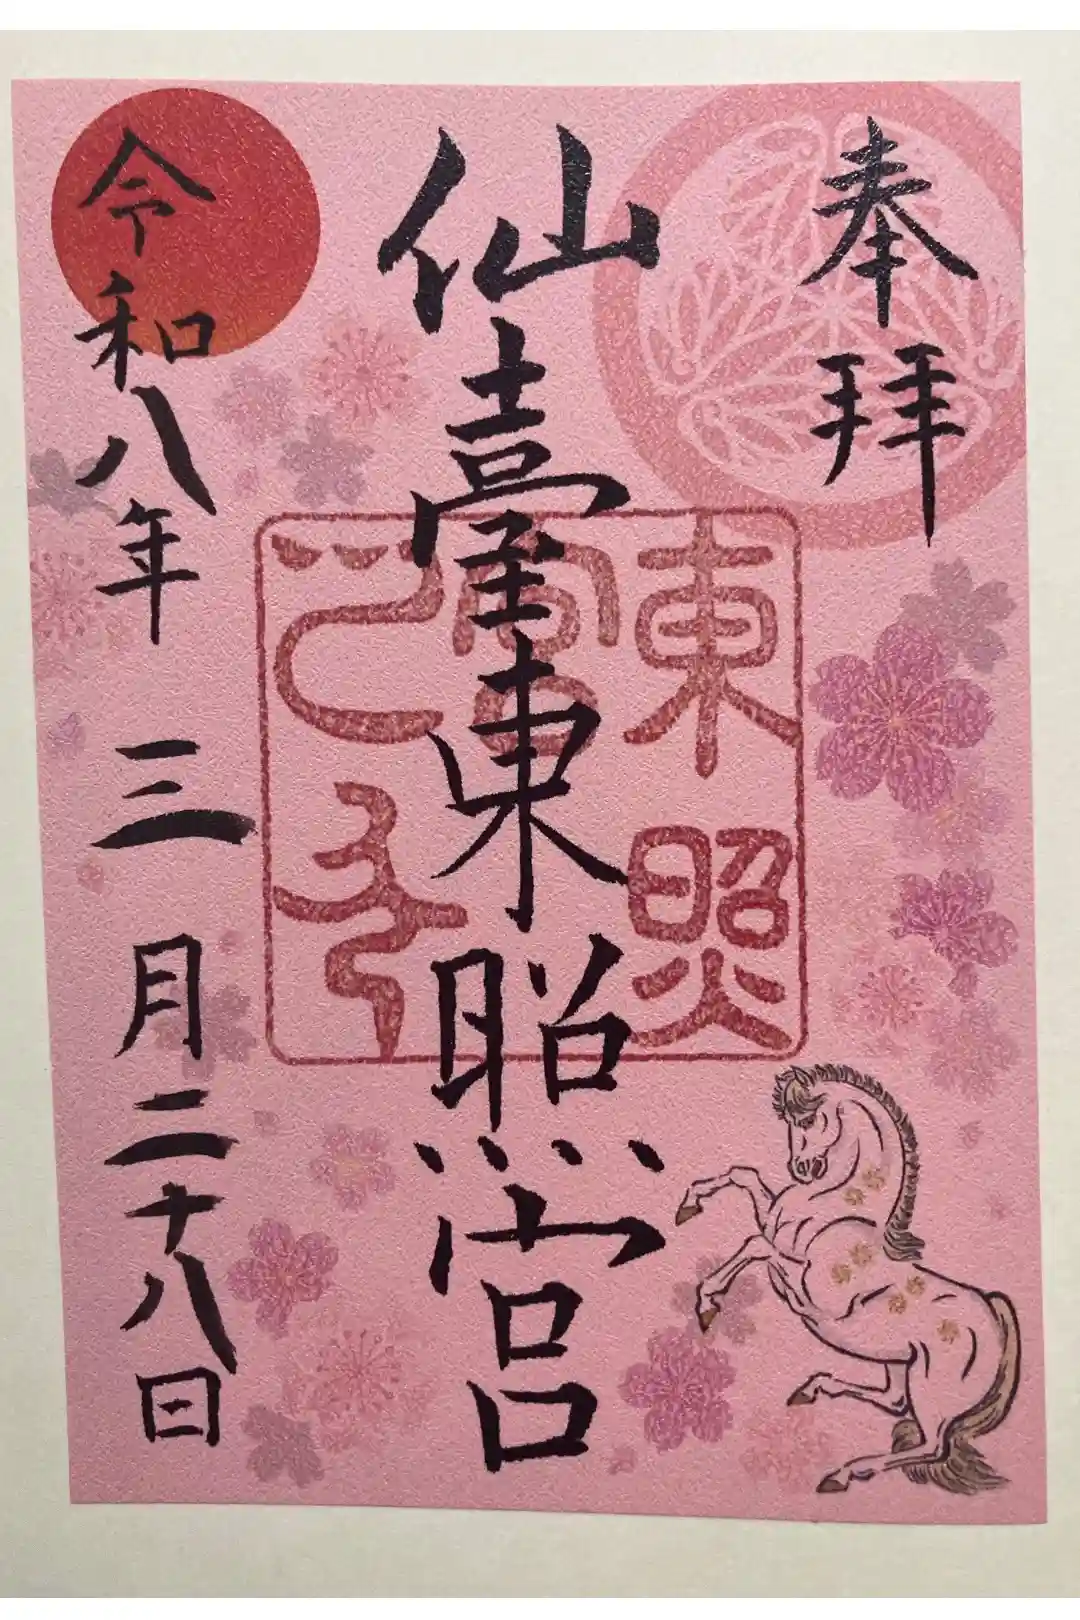 奉拝
仙臺東照宮
東照
宮
之印
令和八年三月二十八日